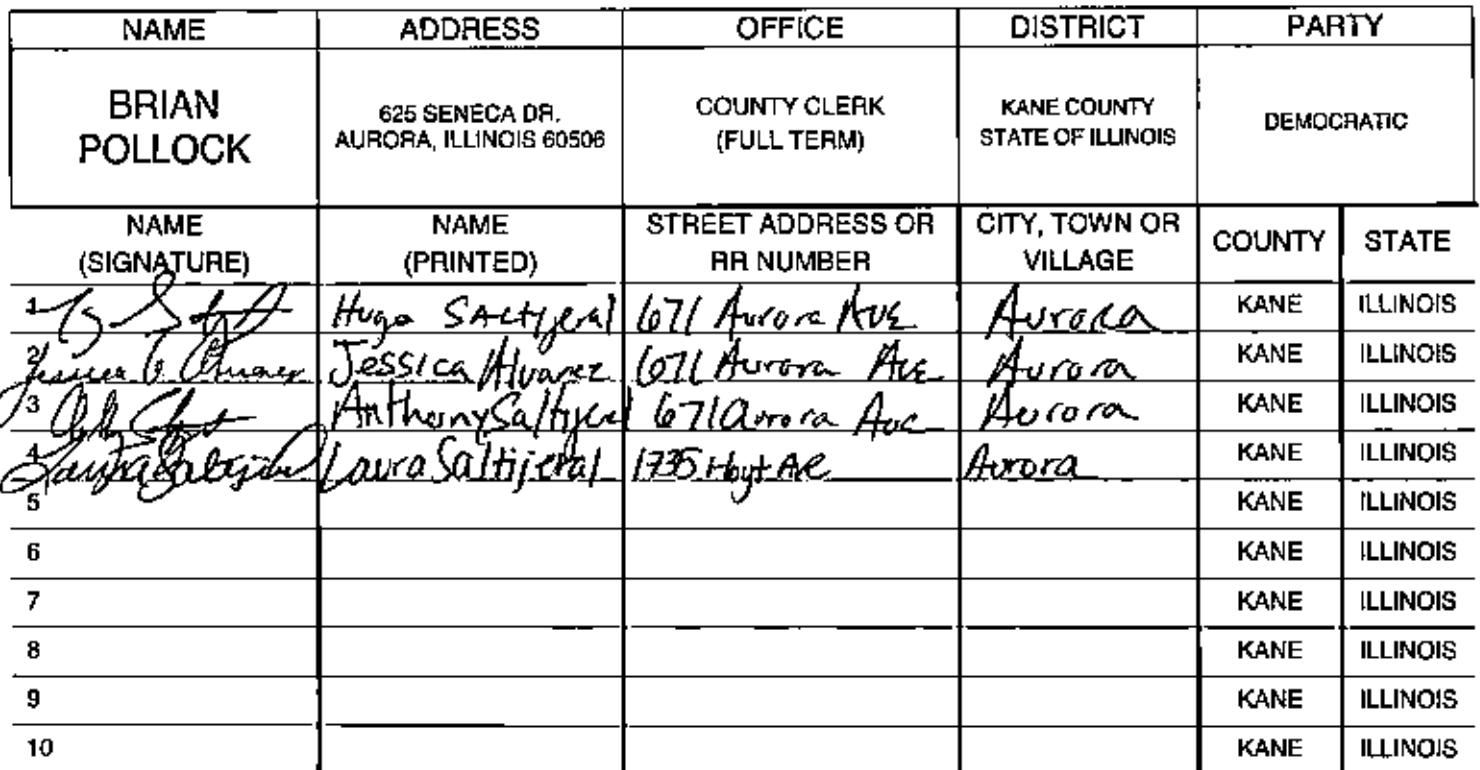 NAME ADDRESS OFFICE DISTRICT PARTY
BRIAN POLLOCK 625 SENECA DR. AURORA, ILLINOIS 60506 COUNTY CLERK (FULL TERM) KANE COUNTY STATE OF ILLINOIS DEMOCRATIC
NAME (SIGNATURE) NAME (PRINTED) STREET ADDRESS OR RR NUMBER CITY, TOWN OR VILLAGE COUNTY STATE
1 Hugo 671 Aurora Ave Aurora KANE ILLINOIS
2 Jessica Alvarez 671 Aurora Ave Aurora KANE ILLINOIS
3 Anthony Saltijeral 671 Aurora Ave Aurora KANE ILLINOIS
4 Laura Saltijeral Laura Saltijeral 1735 Hoyt Ave Aurora KANE ILLINOIS
5 KANE ILLINOIS
6 KANE ILLINOIS
7 KANE ILLINOIS
8 KANE ILLINOIS
9 KANE ILLINOIS
10 KANE ILLINOIS